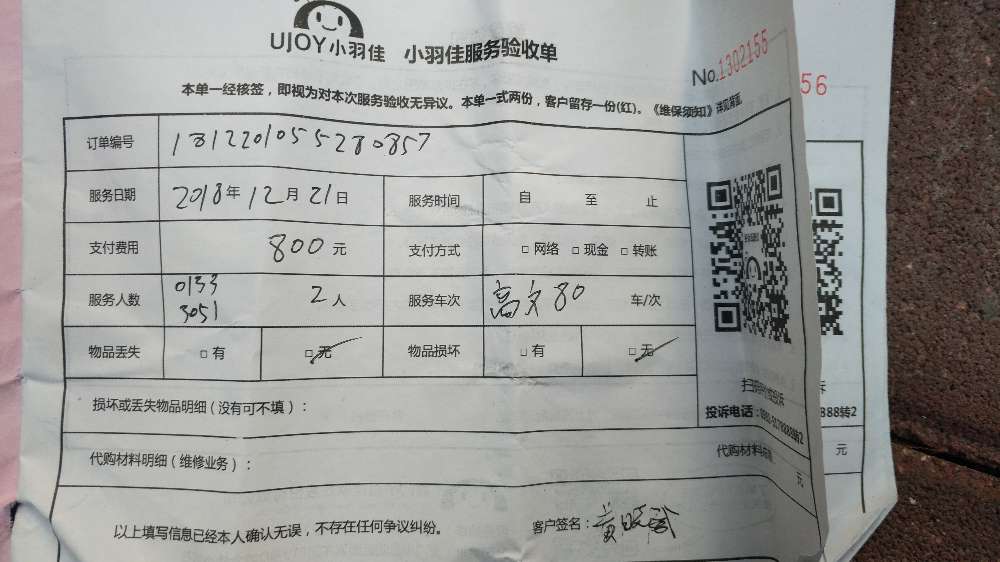 UJOY小羽佳 小羽佳服务验收单
No.1302155
56
本单一经核签，即视为对本次服务验收无异议。本单一式两份，客户留存一份(红)。《维保须知》详见背面
订单编号 1812201055280857
服务日期 2018年12月21日 服务时间 自 至 止
支付费用 800元 支付方式 □网络 □现金 □转账
服务人数 0133 3051 2人 服务车次 80 车/次
物品丢失 □有 □无 物品损坏 □有 □无
损坏或丢失物品明细（没有可不填）：
投诉电话：
888转2
代购材料明细（维修业务）： 代购材料
元
元
以上填写信息已经本人确认无误，不存在任何争议纠纷。 客户签名：